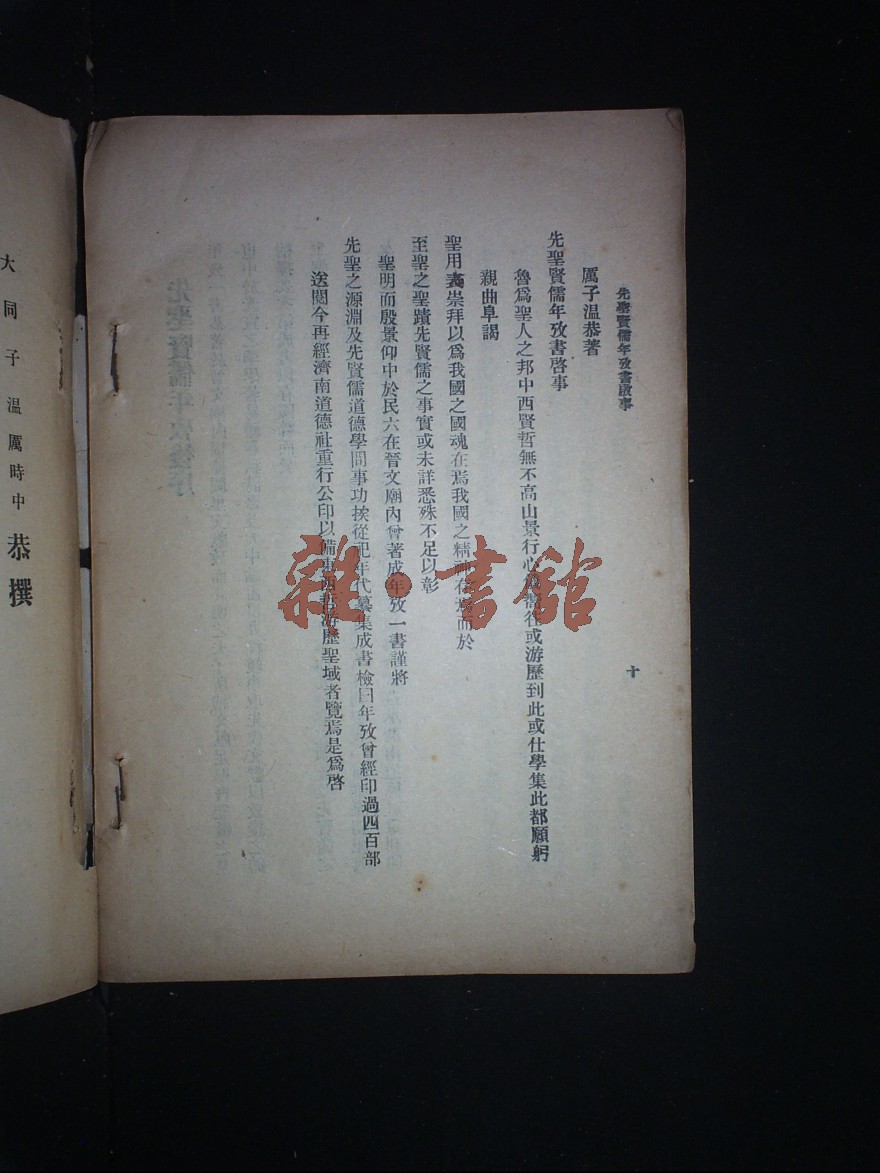 先聖賢儒年攷書啟事
十
厲子温恭著
先聖賢儒年攷書啓事
魯爲聖人之邦中西賢哲無不高山景行心焉嚮往或游歷到此或仕學集此都願躬
親曲阜謁
聖用表崇拜以爲我國之國魂在焉我國之精神在焉而於
至聖之聖蹟先賢儒之事實或未詳悉殊不足以彰
聖明而殷景仰中於民六在晉文廟內曾著成年攷一書謹將
先聖之源淵及先賢儒道德學問事功挨從祀年代纂集成書檢曰年攷曾經印過四百部
送閱今再經濟南道德社重行公印以備東西君游歷聖域者覽焉是爲啓
大同子温厲時中恭撰
雜·書館